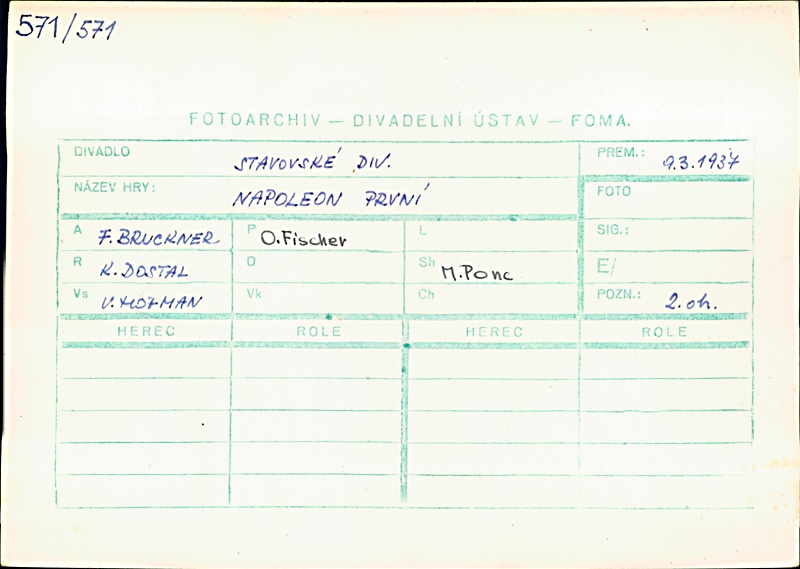 571/571
FOTOARCHIV — DIVADELNÍ ÚSTAV — FOMA.
DIVADLO STAVOVSKÉ DIV. PREM.: 9.3.1937
NÁZEV HRY: NAPOLEON PRVNÍ FOTO
A F. BRUCKNER P O. Fischer L SIG.:
R K. DOSTAL D Sh M. Ponc E/
Vs V. HOFMAN Vk Ch POZN.: 2. oh.
HEREC ROLE HEREC ROLE